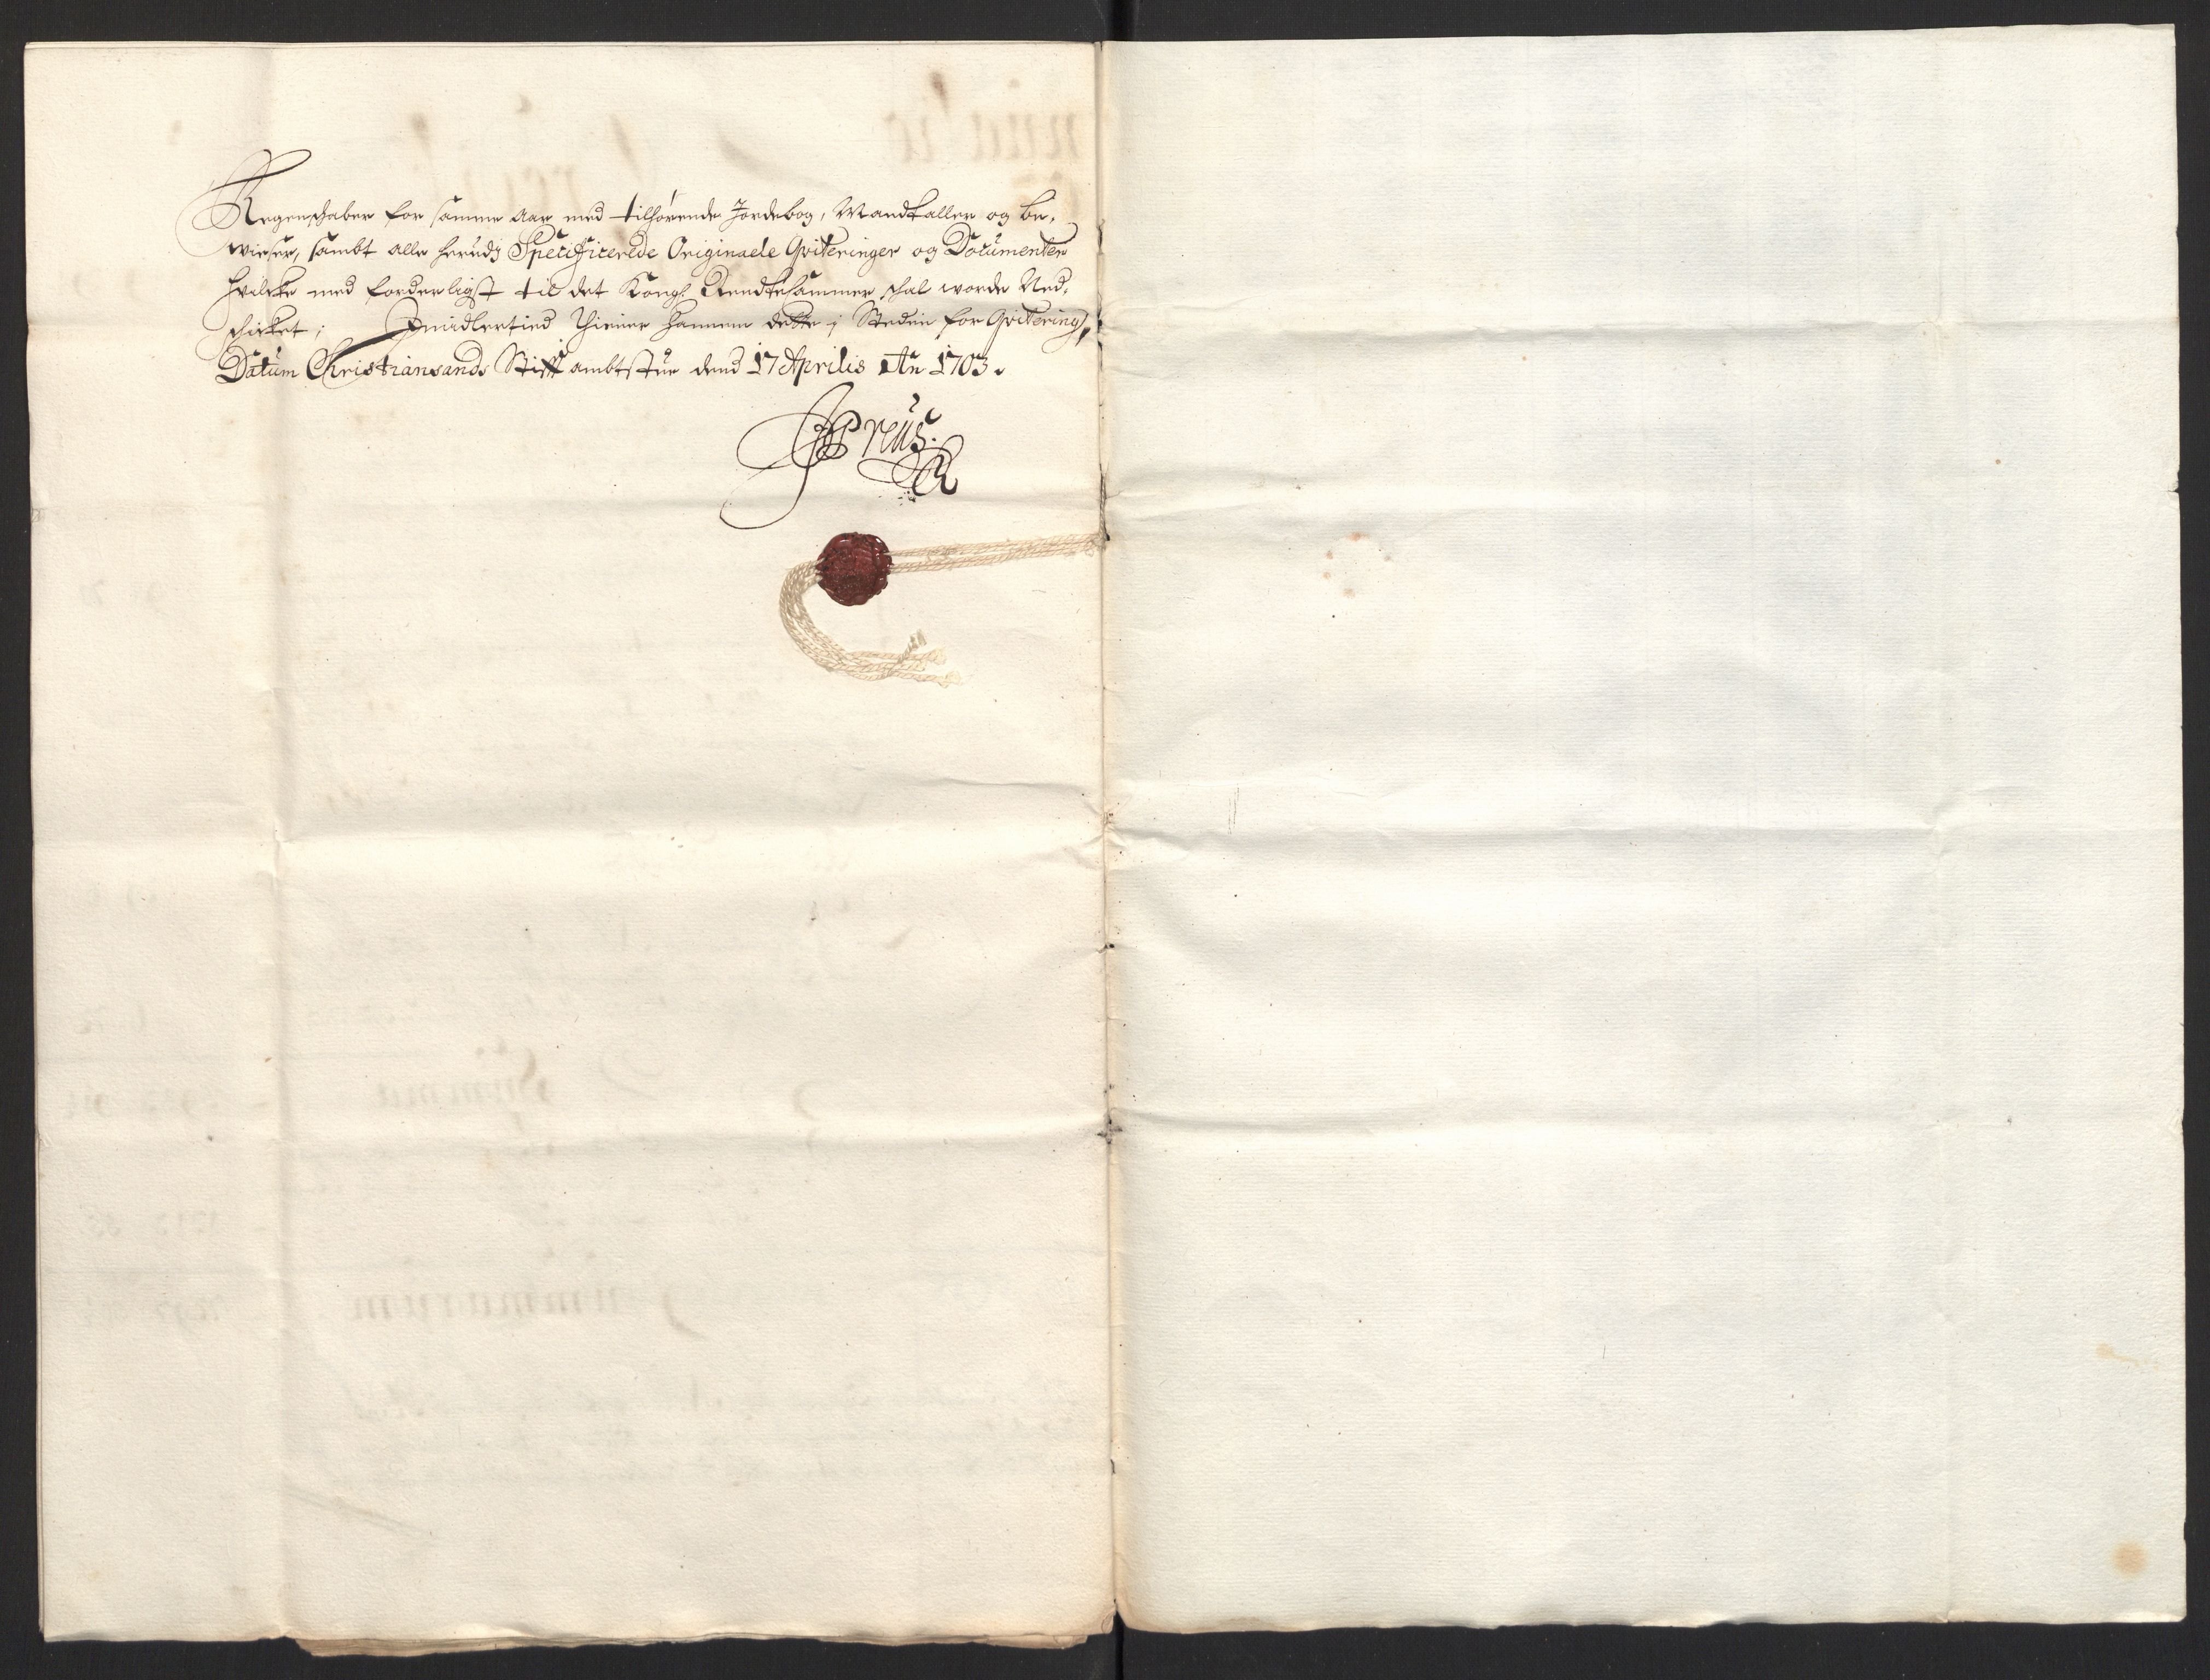 Regenschaber for samme Aar med tilhørende Jordebog, Mandtaller og be-
wieser, sambt alle herudj Specificerede Originaele Qviteringer og Documenter
Hvilcke med forderligst til det Kongl. Rendtekammer schal worde Ned-
schicket; Imidlertied thiener hannem dette j Steden for Qvitering,
Datum Christiansands Stifft ambtstue dend 17 Aprilis Ao 1703.
Preüs.